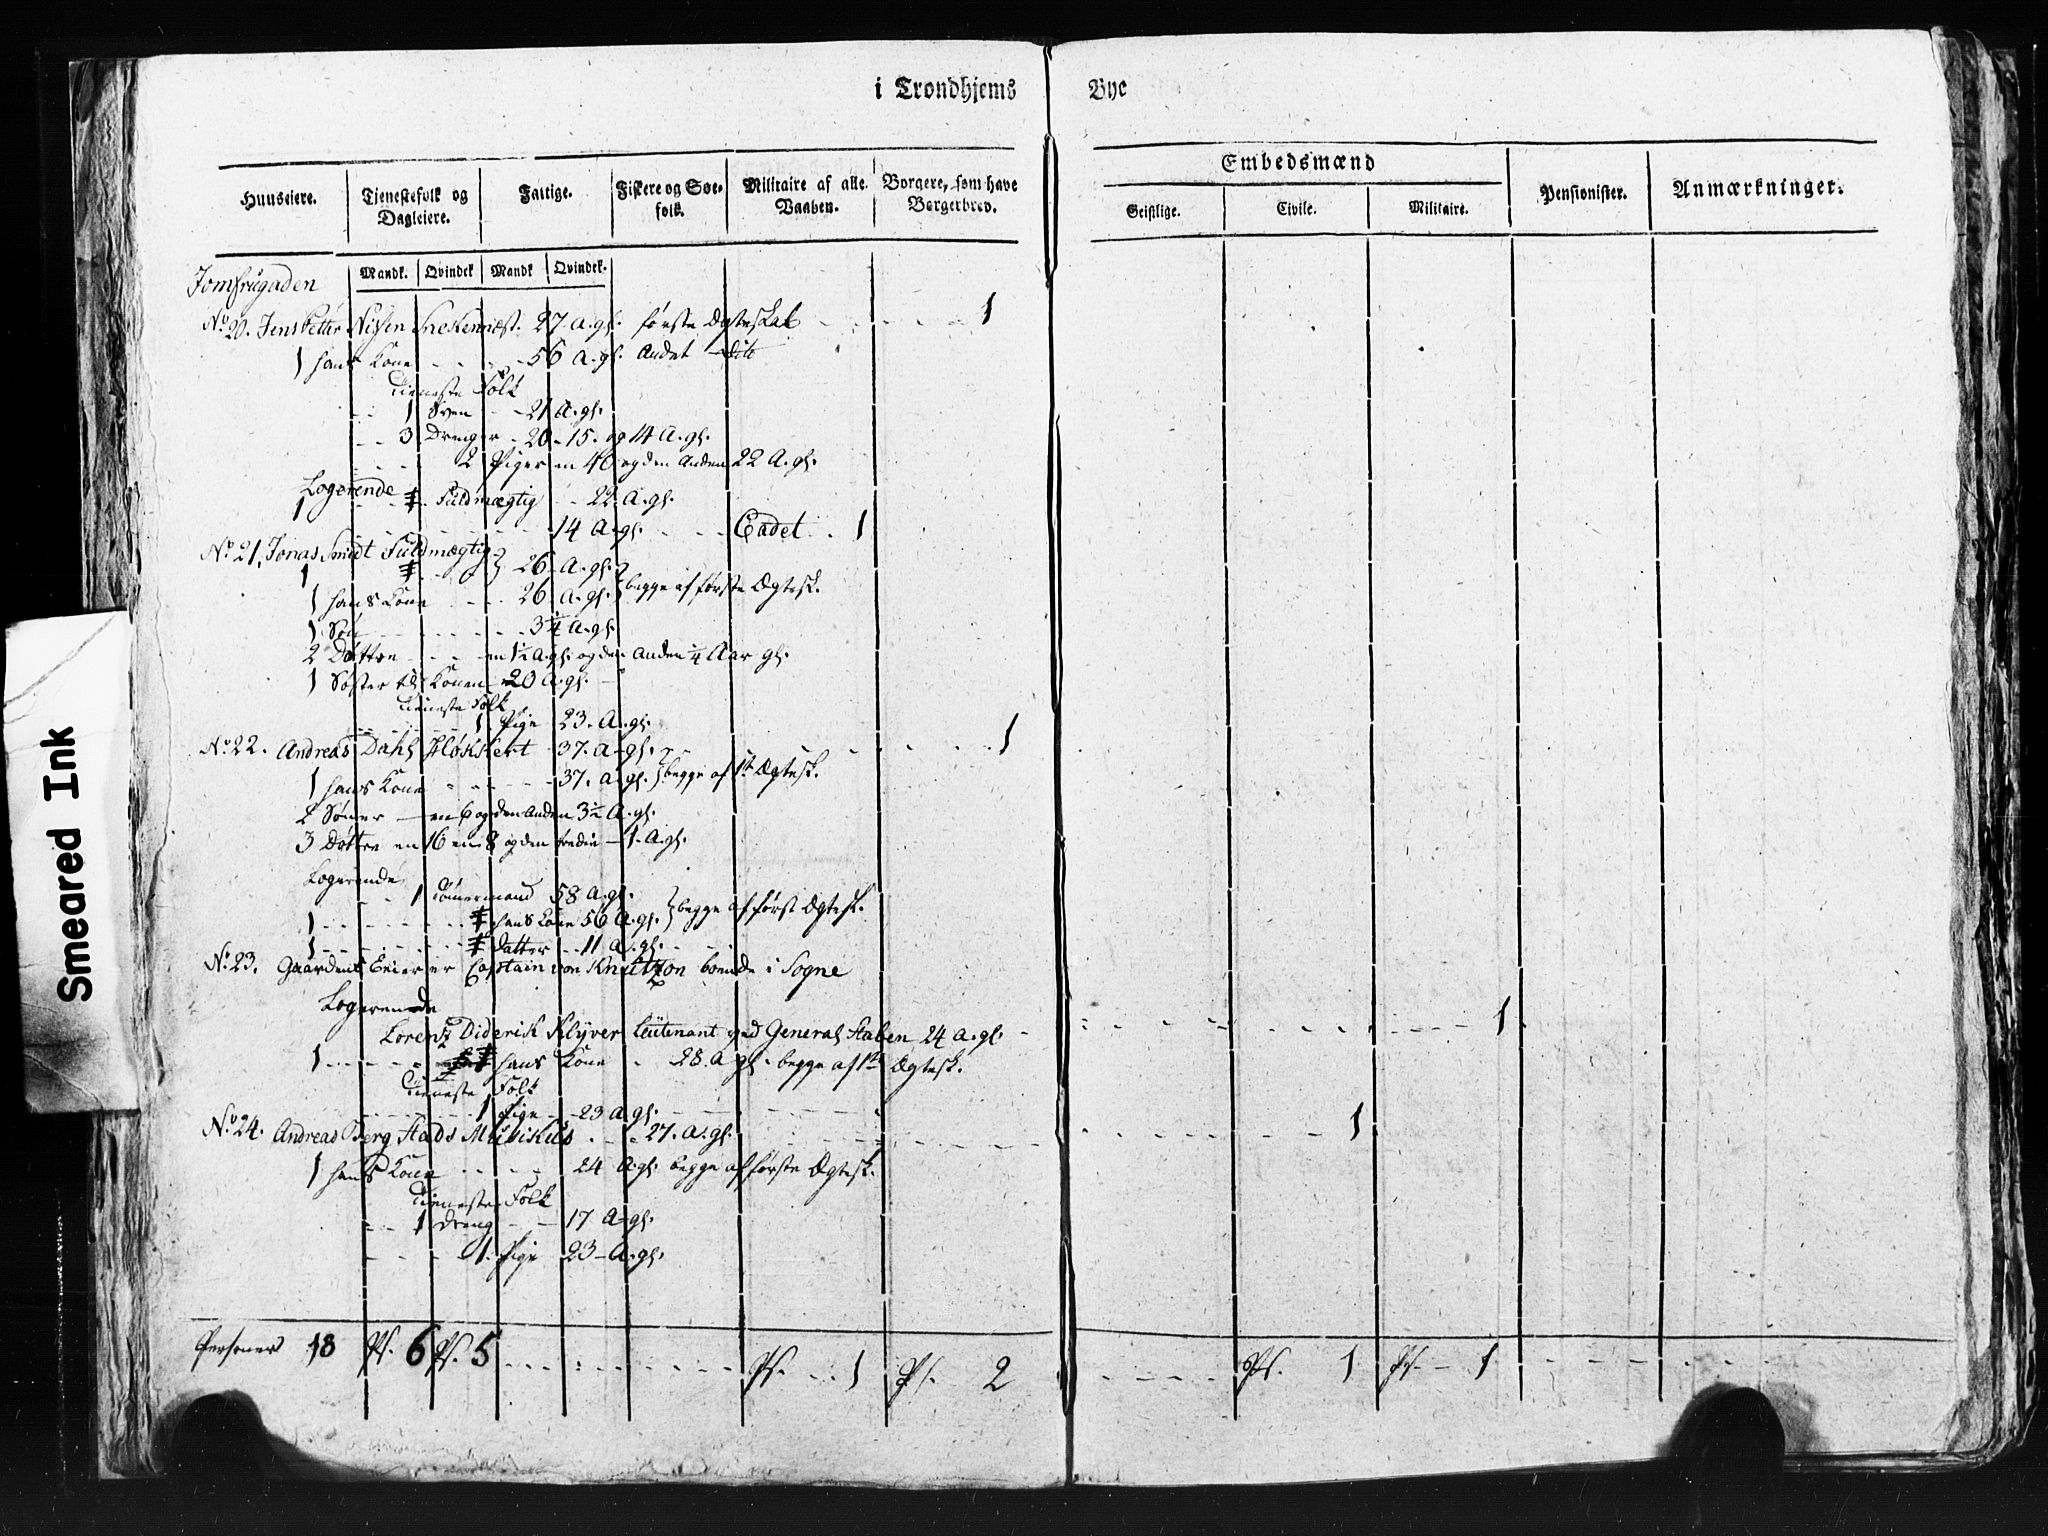 i Trondhjems Bye
Huuseiere. Tjenestefolk og Dagleiere. Fattige. Fiskere og Søefolk. Militaire af alle Vaaben. Borgere, som have Borgerbrev. Embedsmænd Pensionister. Anmærkninger.
Geistlige. Civile. Militaire.
Mandk. Qvindek Mandk Qvindek.
Jomfrugaden
No 20. Jens Petter Nissen Snekermest. 27. A. gl. første Ægteskab 1
1 hans Kone 56 A. gl. Andet dito
Tieneste Folk
1 Sven 21 A. gl.
3 Drenger 20 15. og 14 A. gl.
2 Piger en 40 og den Anden 22 A. gl.
Logerende
1 Fuldmægtig 22. A. gl.
14 A. gl. Cadet 1
No 21. Jonas Smidt Fuldmægtig 26 A. gl.
1
1 hans Kone 26. A. gl. begge af første Ægtesk.
1 Søn 3 1/4 A. gl.
2 Døttre en 1 1/2 A. gl. og den Anden 1/4 Aar gl.
1 Søster til Konen 20 A. gl.
Tieneste Folk
1 Pige 23. A. gl.
No 22. Andreas Dahl 37. A. gl. 1
1 hans Kone 37. A. gl. begge af 1te Ægtesk.
2 Sønner en 6 og den Anden 3 1/2 A. gl.
3 Døttre en 16 en 8 og den tredie 1. A. gl.
Logerende
1 Tømermand 58 A. gl.
1 hans Kone 56 A. gl. begge af først Ægtesk.
1 Datter 11 A. gl.
No 23. Gaardens Eier er Captain von Knutzon boende i Sogne
Logerende
Lorentz Diderik Klÿver Lieutenant ved General Staben 24 A. gl. 1
1 hans Kone 28. A gl. begge af 1te Ægtesk.
Tieneste Folk
1 Pige 23 A gl.
No 24. Andreas Berg Stads Musikus 27. A. gl. 1
1 hans Kone 24 A. gl. begge af første Ægtesk.
Tieneste Folk
1 Dreng 17 A. gl.
1. Pige 23 A. gl.
Personer 18 Ps. 6 Ps. 5 Ps. 1 Ps. 2 Ps. 1 Ps. 1
Smeared Ink